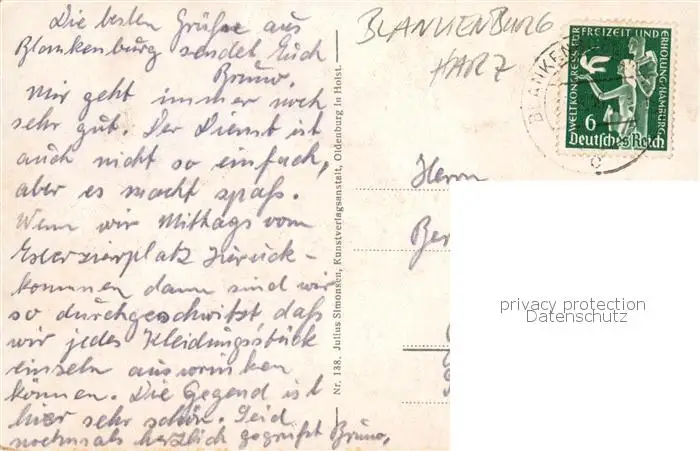 Die besten Grüße aus
Blankenburg sendet Euch
Bruno.
Mir geht immer noch
sehr gut. Der Dienst ist
auch nicht so einfach,
aber es macht spaß.
Wenn wir Mittags vom
Exerzierplatz zurück-
kommen dann sind wir
so durchgeschwitzt, daß
wir jedes Kleidungsstück
einzeln auswrinken
können. Die Gegend ist
hier sehr schön. Seid
nochmals herzlich gegrüßt Bruno.
Nr. 138. Julius Simonsen, Kunstverlagsanstalt, Oldenburg in Holst.
BLANKENBURG
HARZ
BLANKEN
WELTKONGRESS FÜR FREIZEIT UND ERHOLUNG·HAMBURG
6
Deutsches Reich
Herrn
Ber
privacy protection
Datenschutz